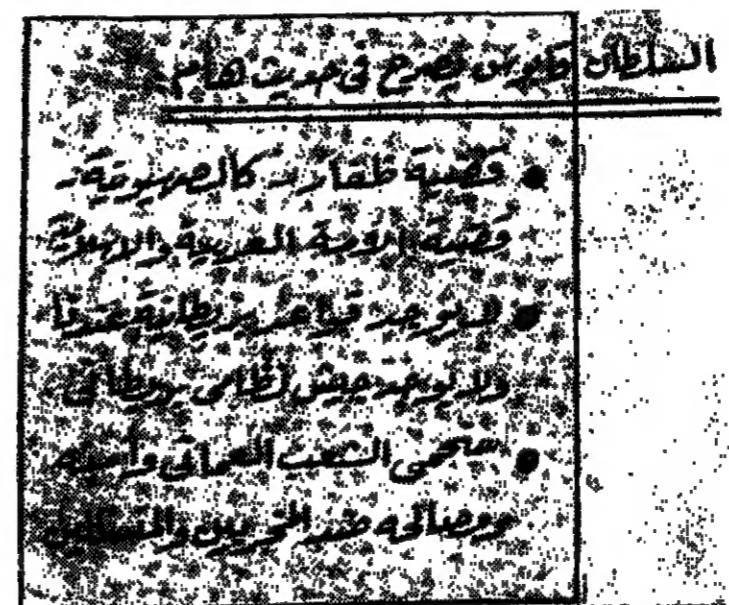 السلطان قابوس يصرح في حديث هام
• قضية ظفار .. كالصهيونية ..
قضية الأمة العربية والاسلامية
• لا يوجد قواعد بريطانية عندنا
ولا يوجد جيش نظامي بريطاني
• سنحمي الشعب العماني وأمنه
ومصالحه ضد المخربين والمتسللين